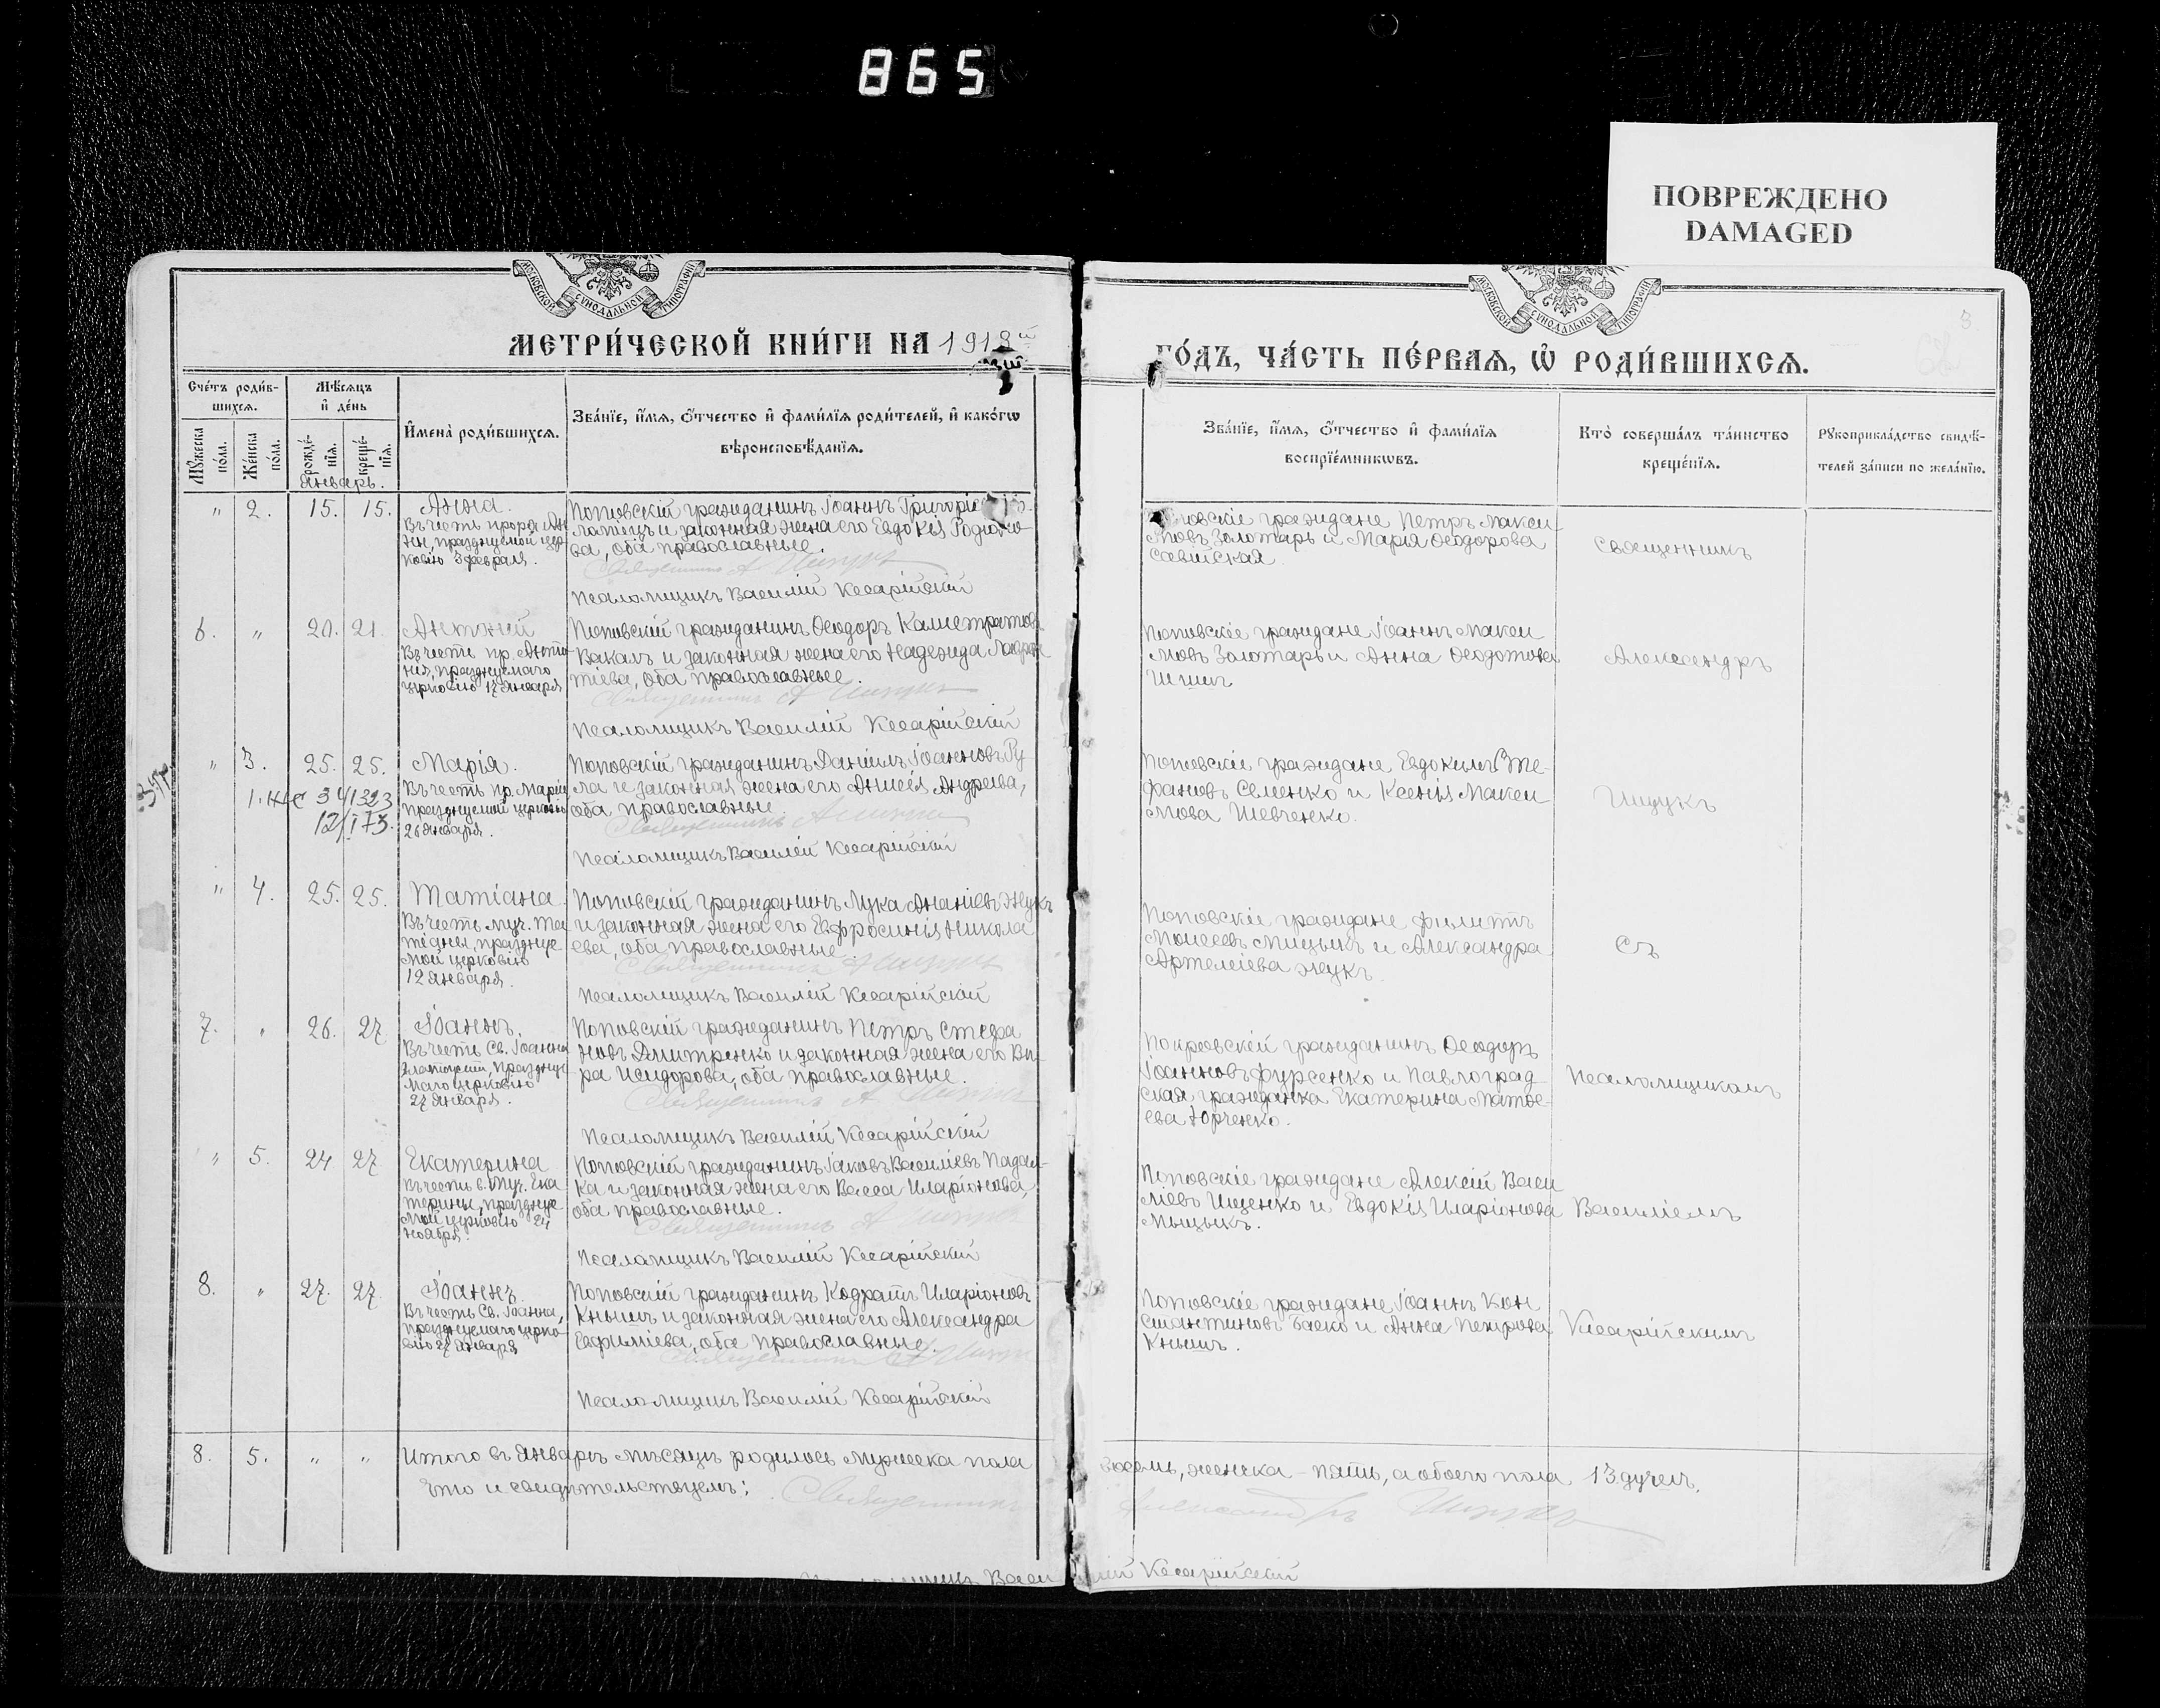 865
ПОВРЕЖДЕНО
DAMAGED
МОСКОВСКОЙ СѴНОДАЛЬНОЙ ТИПОГРАФІИ
МОСКОВСКОЙ СѴНОДАЛЬНОЙ ТИПОГРАФІИ
3
МЕТРИ́ЧЕСКОЙ КНИ́ГИ НА 1918й
ГО́ДЪ, ЧА́СТЬ ПЕ́РВАЯ, Ѡ҆ РОДИ́ВШИХСЯ.
Сче́тъ роди́в-
шихся.
Мѣ́сяцъ
и҆ де́нь
Му́жеска
по́ла.
Же́нска
по́ла.
рожде́-
нїя.
креще́-
нїя.
Январь.
И҆мена̀ роди́вшихся.
Зва́нїе, и҆́мя, ѻ҆́тчество и҆ фами́лїя роди́телей, и҆ како́гѡ
вѣроисповѣ́данїя.
Зва́нїе, и҆́мя, ѻ҆́тчество и҆ фами́лїя
воспрїе́мникѡвъ.
Кто̀ соверша́лъ та́инство
креще́нїя.
Рꙋкоприкла́дство свидѣ́-
телей за́писи по жела́нїю.
" 2. 15. 15. Анна.
Въ честь прор. Ан
ны, празднуемой цер
ковію 3 февраля.
Поповскій гражданинъ Іоаннъ
и законная жена его Евдокія
ва, оба православные.
Священникъ А Ищукъ
Псаломщикъ Василій Кесарійскій
граждане Петръ Макси
мовъ Золотарь и Марія Ѳеодорова
Савитская
Священникъ
6. " 20. 21. Антоній
Въ честь пр. Анто
нія, празднуемаго
церковію 17 Января
Поповскій гражданинъ Ѳеодоръ Калистратовъ
Вакалъ и законная жена его Надежда
тіева, оба православные.
Священникъ А Ищукъ
Псаломщикъ Василій Кесарійскій
Поповскіе граждане Іоаннъ Макси
мовъ Золотарь и Анна Ѳеодотова
Шишъ
Александръ
" 3. 25. 25. Марія.
Въ честь пр. Маріи
празднуемой церковію
26 Января.
1323
Поповскій гражданинъ Даніилъ Іоанновъ Ру
ла и законная жена его Анисія Андреева,
оба православные
Священникъ А Ищукъ
Псаломщикъ Василій Кесарійскій
Поповскіе граждане Евдокимъ Сте-
фановъ Семенко и Ксенія Макси
мова Шевченко.
Ищукъ
" 4. 25. 25. Татіана.
Въ честь муч. Та
тіаны, праздуе
мой церковію
12 Января.
Поповскій гражданинъ Лука Ананіевъ Жукъ
и законная жена его Евфросинія Никола
ева, оба православные.
Священникъ А Ищукъ
Псаломщикъ Василій Кесарійскій
Поповскіе граждане Филиппъ
Моисеевъ Мицыкъ и Александра
Артеміева Жукъ
Съ
7. " 26. 27 Іоаннъ.
Въ честь Св. Іоанна
Златоустаго, праздуе
маго церковію
27 Января.
Поповскій гражданинъ Петръ Стефа
новъ Дмитренко и законная жена его Вѣ-
ра Исидорова, оба православные.
Священникъ А Ищукъ
Псаломщикъ Василій Кесарійскій
Покровскій гражданинъ Ѳеодоръ
Іоанновъ Фурсенко и Павлоград
ская гражданка Екатерина Матѳе-
ева Юрченко.
Псаломщикомъ
" 5. 24 27 Екатерина
Въ честь в. муч. Ека
терины, праздуе
мой церковію 24
Ноября.
Поповскій гражданинъ Іаковъ Василіевъ Падал-
ка и законная жена его Васса Иларіонова,
оба православные.
Священникъ А Ищукъ
Псаломщикъ Василій Кесарійскій
Поповскіе граждане Алексій Васи
ліевъ Ищенко и Евдокія Иларіонова
Мыцыкъ.
Василіемъ
8. " 27. 27. Іоаннъ.
Въ честь Св. Іоанна,
празднуемаго церко-
вію 27 Января
Поповскій гражданинъ Кодратъ Иларіоновъ
Кнышъ и законная жена его Александра
Евфиміева, оба православные.
Священникъ А Ищукъ
Псаломщикъ Василій Кесарійскій
Поповскіе граждане Іоаннъ Кон
стантиновъ Баско и Анна Петрова
Кнышъ.
Кесарійскимъ
8. 5. " " Итого въ Январѣ мѣсяцѣ родилось мужеска пола
восемь, женска - пять, а обоего пола 13 душъ.
Что и свидѣтельствуемъ: Священникъ
Александръ Ищукъ
Псаломщикъ Василій Кесарійскій